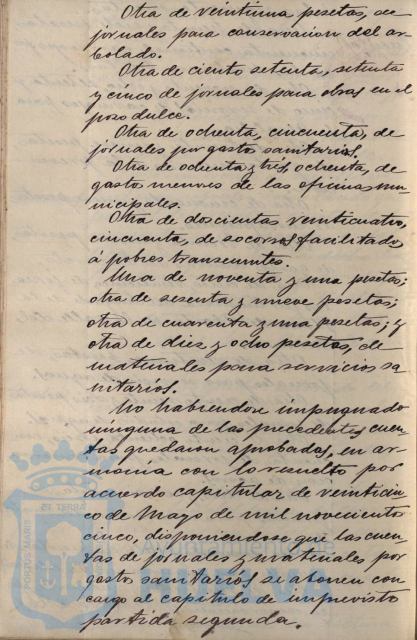 Otra de veintiuna pesetas, de
jornales para conservacion del ar-
bolado.
Otra de ciento setenta, setenta
y cinco de jornales para obras en el
pozo dulce.
Otra de ochenta, cincuenta, de
jornales por gasto sanitarios.
Otra de ochenta y tres, ochenta, de
gasto menores de las oficinas mu-
nicipales.
Otra de doscientas veinticuatro,
cincuenta, de socorros facilitados
á pobres transeuntes.
Una de noventa y una pesetas;
otra de sesenta y nueve pesetas;
otra de cuarenta y una pesetas; y
otra de diez y ocho pesetas, de
materiales para servicios sa-
nitarios.
No habiendose impugnado
ninguna de las precedentes cuen-
tas quedaron aprobadas, en ar-
monia con lo resuelto por
acuerdo capitular de veinticin-
co de Mayo de mil novecientos
cinco, disponiendose que las cuen-
tas de jornales y materiales por
gasto sanitarios se abonen con
cargo al capitulo de imprevisto
partida segunda.
PORTUS MARIS ET TERRÆ